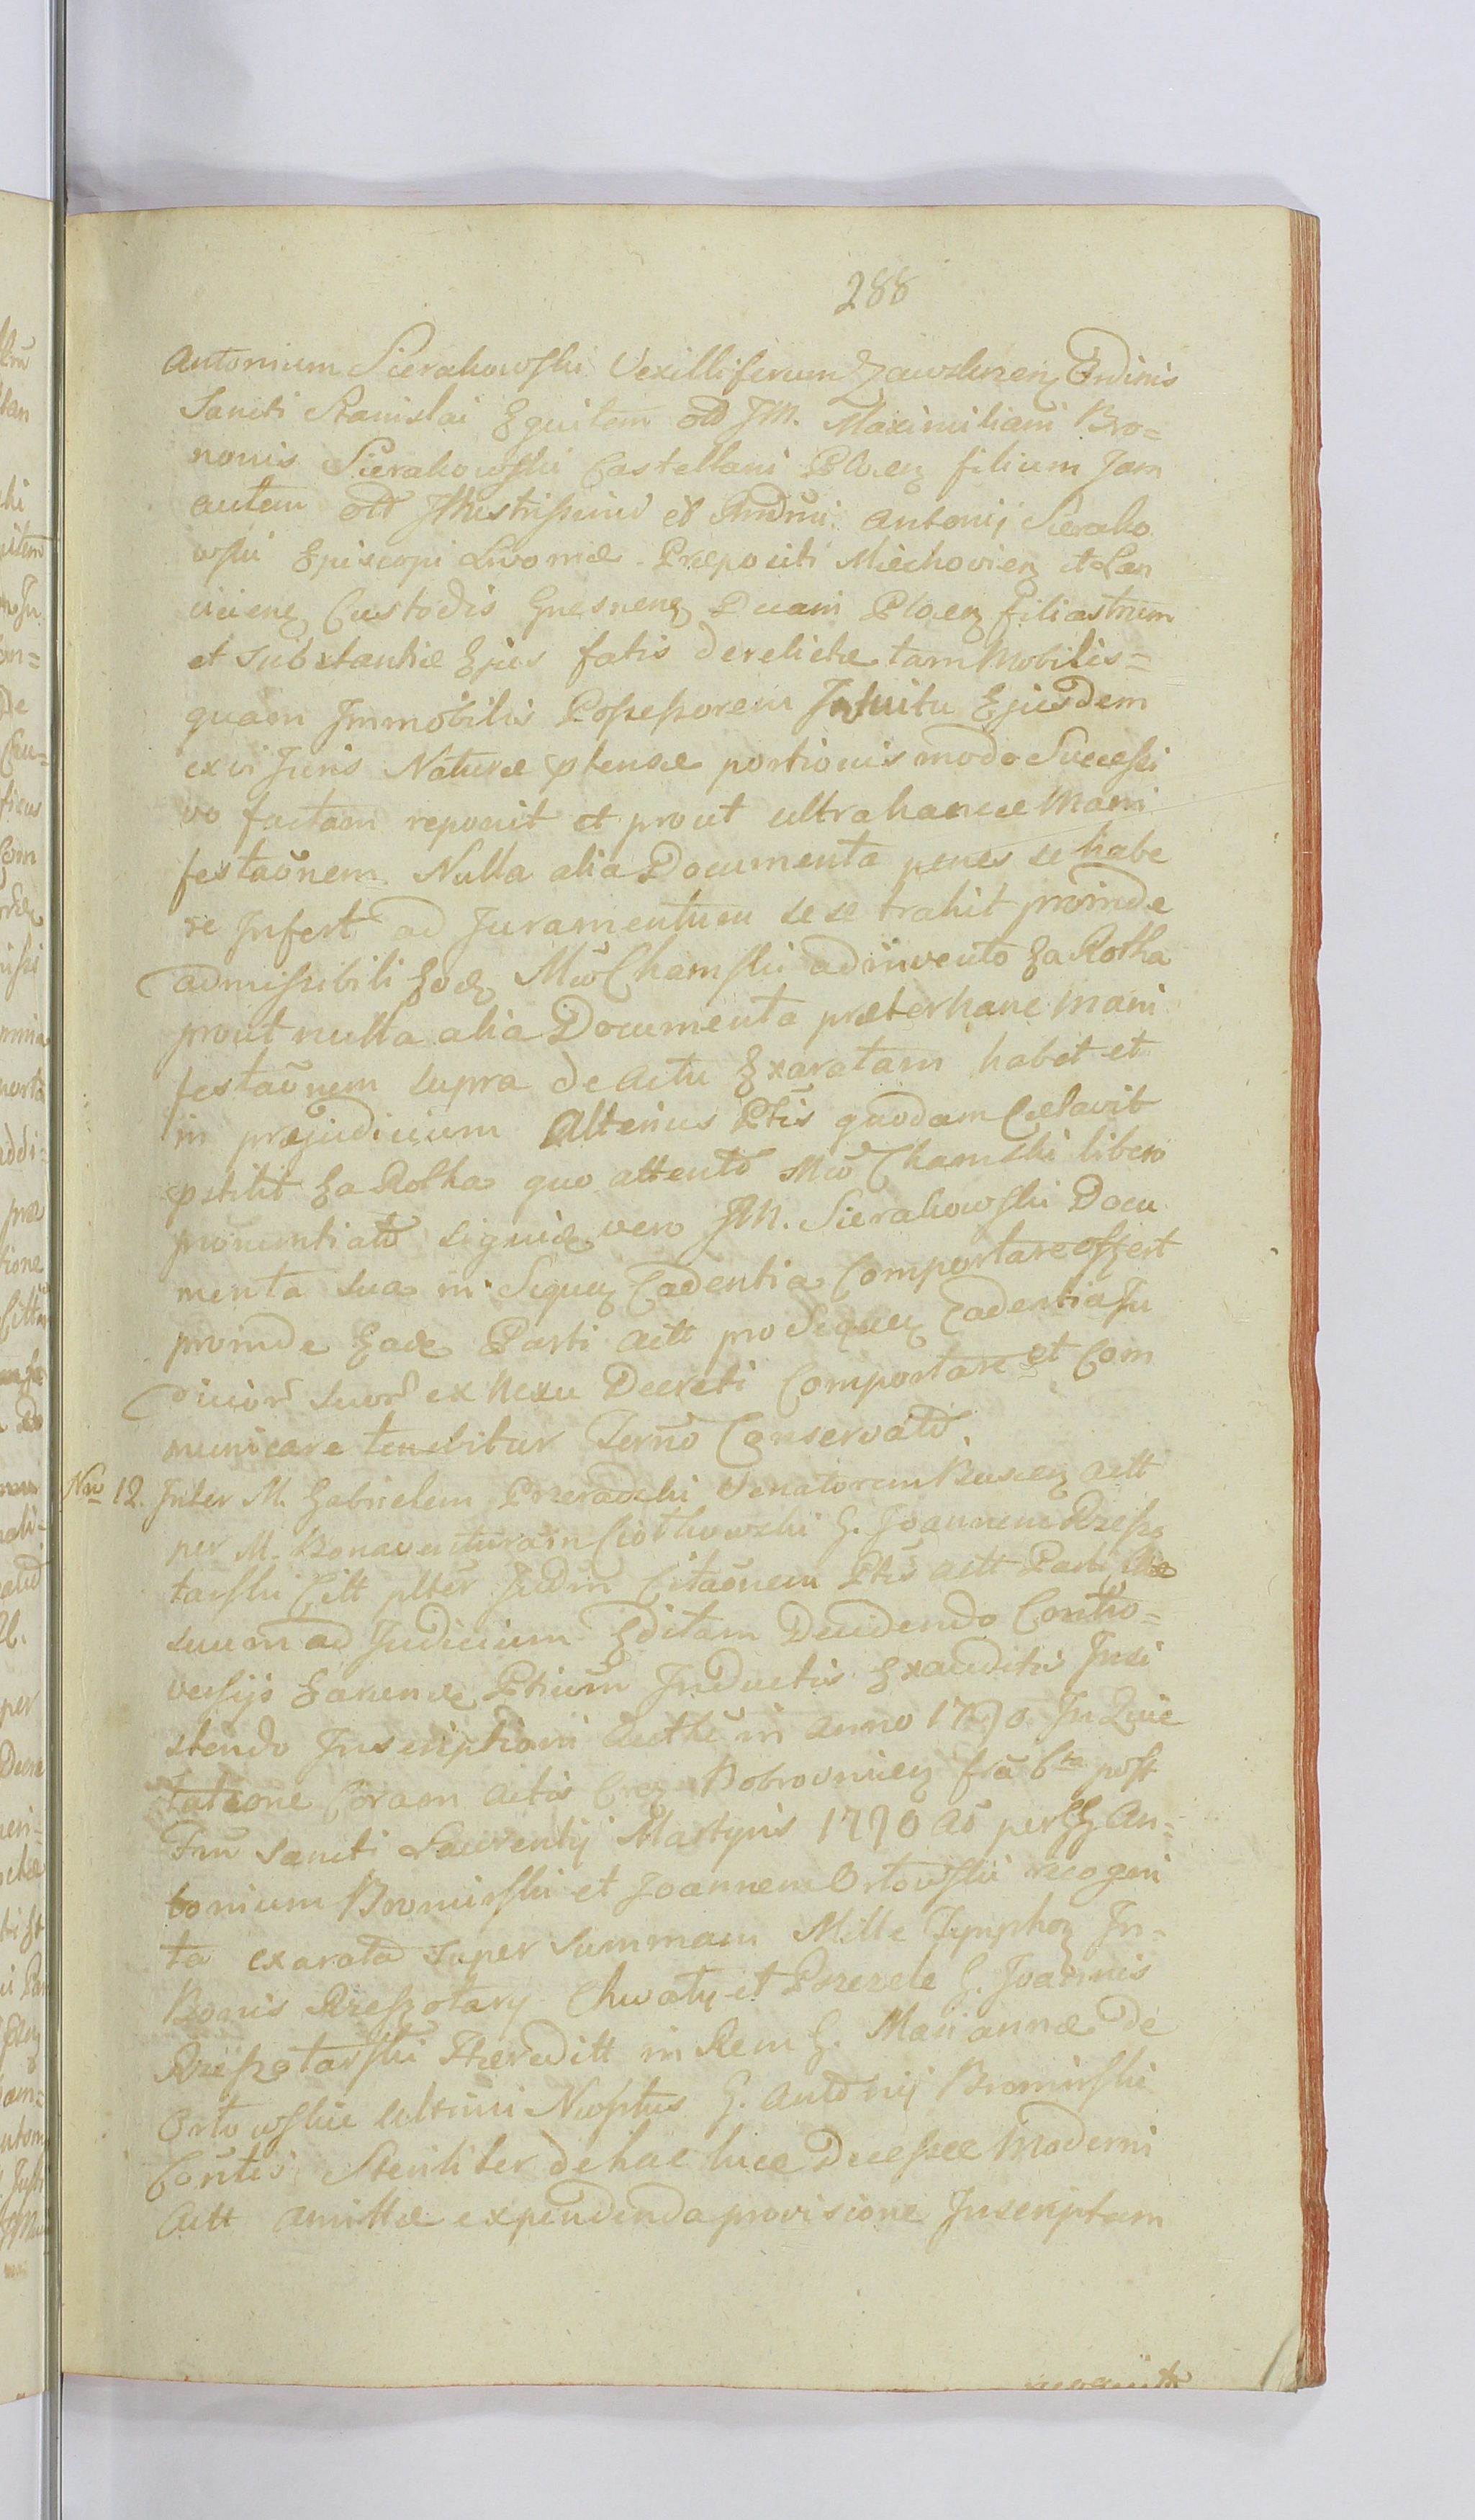 288
Antonium Sierakowski Vexilliferum Zawskrzen Ordinis
Sancti Stanislai Equitem olb JM. Maximiliani Bro=
nonis Sierakowski Castellani Plocen filium Jam
autem olb Illustrissimi et Rndmi Antonij Sierako
wski Episcopi Livoniæ Præpositi Miechovien et Lan
vicien Custodis Gnesnen Decani Plocen filiastrum
et substantiæ Ejus fatis derelictæ tam Mobilis=
quam Immobilis Possessorem Intuitu Ejusdem
ex vi Juris Naturæ ptensæ portionis modo Successi
vo factam reponit et prout ultra hancce Mani
festaõnem Nulla alia Documenta penes se habe
re Infert ad Juramentum sese trahit proinde
admissibili Eod Mco Chamski adinvento Ea Rotha
prout nulla alia Documenta præter hanc Mani
festaõnem supra de actu Exaratam habet et
in præjudicium Alterius Ptis quodam Celavit
pstitit Ea Rotha quo attento Mco Chamski libero
pronuntiato siquid vero JM. Sierakowski Docu
menta sua in Sequen Cadentia Comportare offert
proinde Ead Parti actt pro Sequen Cadentia Ju
dicior suor ex Nexu Decreti Comportare et Com
municare tenebitur Termo Conservato.
Nro 12. Inter M. Gabrielem Przeradzki Venatorem Buscen actt
per M. Bonaventuram Ciotkowski G. Joannem Rzeszo
tarski Citt plter Judm Citaõnem Ptis actt Parti Citæ
suum ad Judicium Editam Decidendo Contro=
versijs Earund Ptium Inductis Exauditis Insi
stendo Inscriptioni Authci in anno 1770 In Quie
tatione Coram actis Bobrovnicen fra 6ta post
Ftm Sancti Laurentij Martyris 1770 Ao per GG An=
tonium Bromirski et Joannem Ortowski recogni
ta exarata super summam Mille Tymphon In=
Bonis Rzeszotary Chwaty et Pszczele G. Joannis
Rzeszotarski Hæreditt in Rem G. Mariannæ de
Ortowskie ultimi Nuptus G. Antonij Bromirski
Contis Steriliter de hac luce Decessæ Moderni
Actt amittæ expendenda provisione Inscriptam